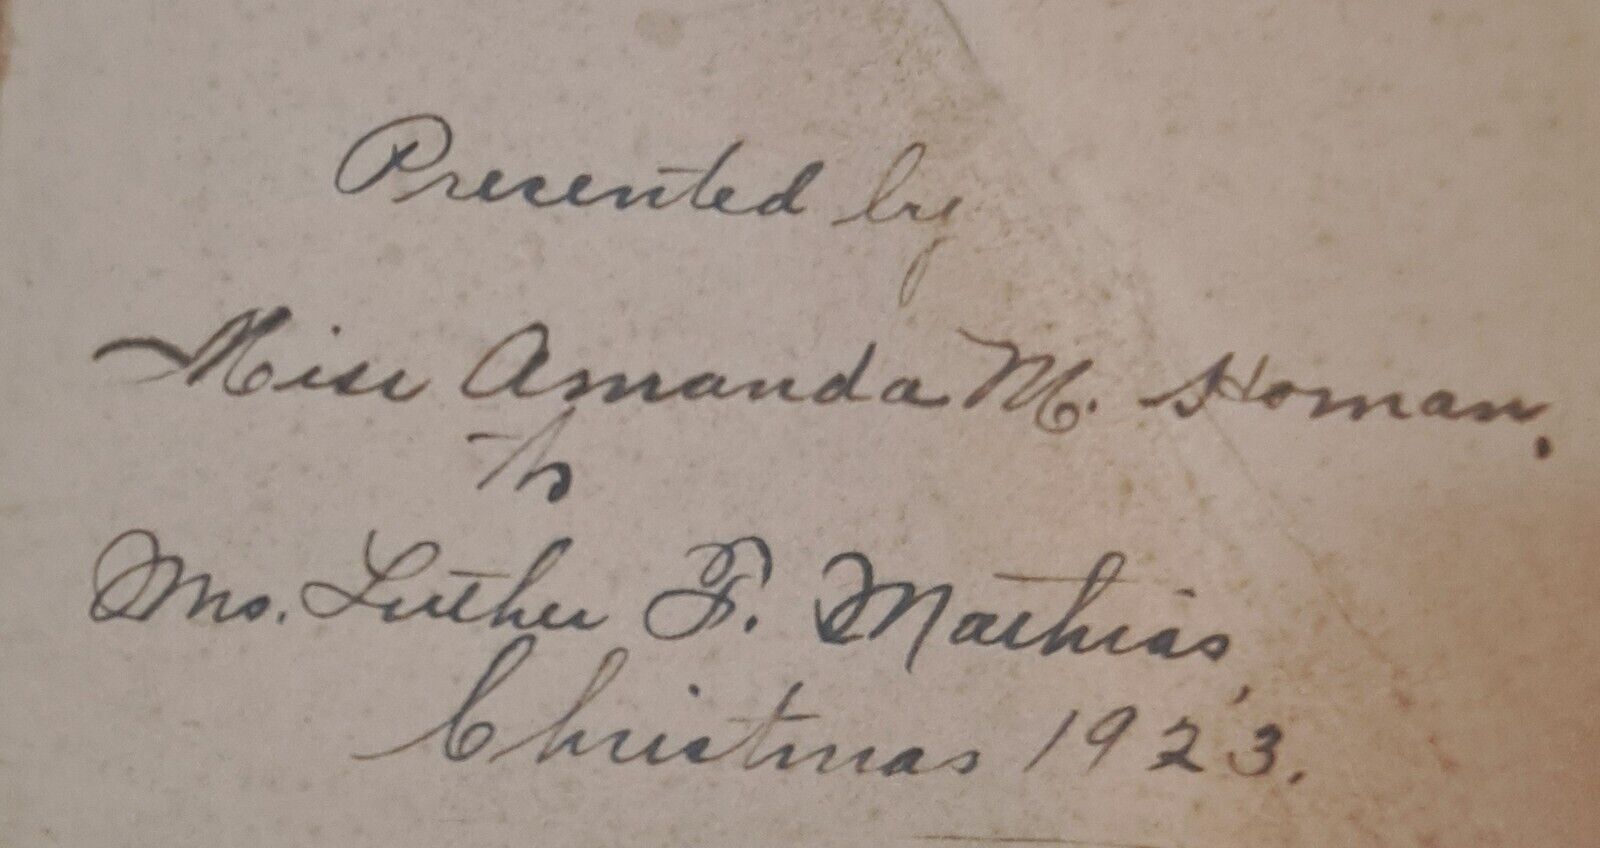 Presented by
Miss Amanda M. Homan.
to
Mrs. Luther F. Mathias,
Christmas 1923.